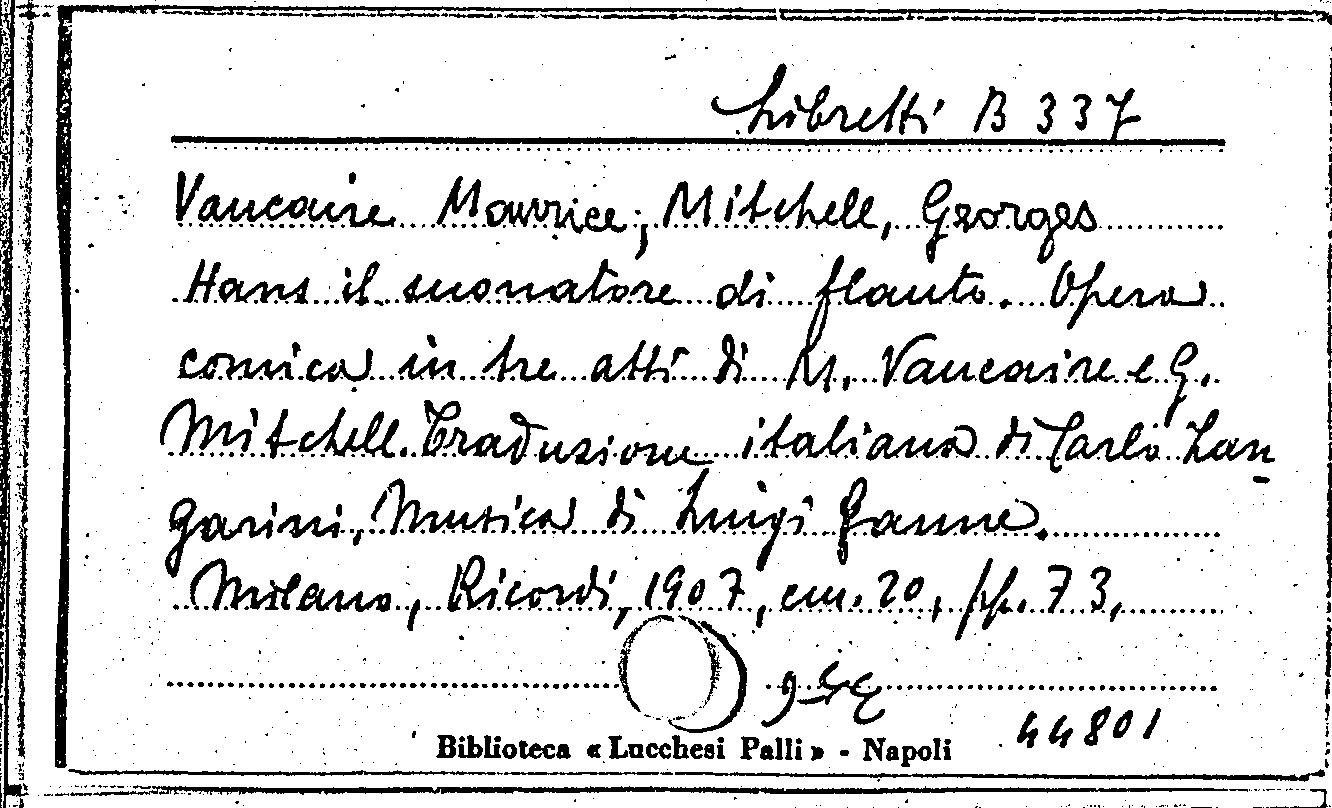 Libretti B 337
Vaucaire Maurice; Mitchell, Georges
Hans il suonatore di flauto. Opera
comica in tre atti di M. Vaucaire e G.
Mitchell. Traduzione italiana di Carlo Zan
garini, Musica di Luigi Ganne.
Milano, Ricordi, 1907, cm. 20, pp. 73.
44801
Biblioteca « Lucchesi Palli » - Napoli